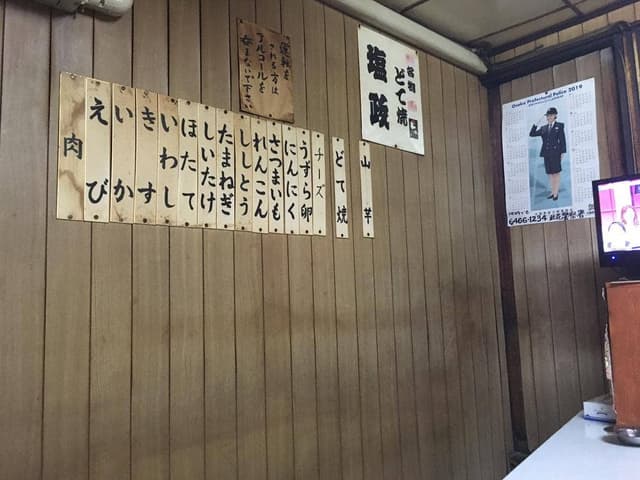 肉
えび
いか
きす
いわし
ほたて
しいたけ
たまねぎ
ししとう
れんこん
さつまいも
にんにく
うずら卵
チーズ
どて焼
山芋
運転を
される方は
アルコールを
飲まないで下さい
どて焼
Osaka Prefectural Police 2019
6466-1234